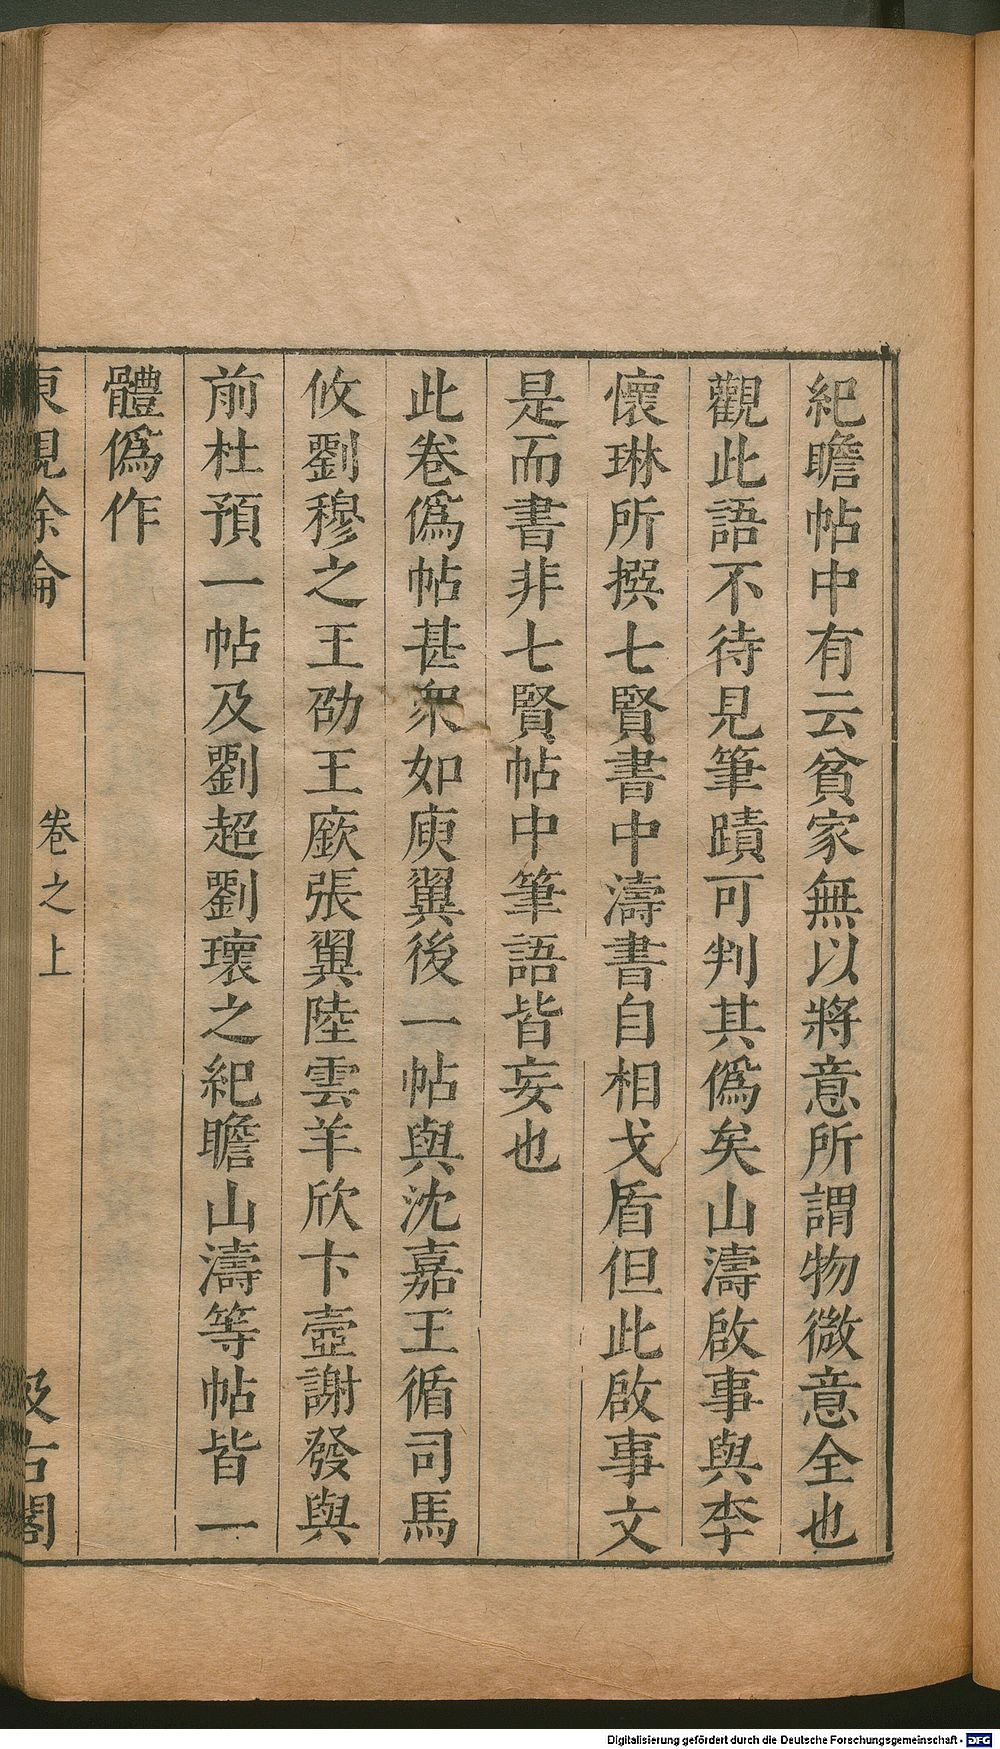 紀瞻帖中有云貧家無以將意所謂物微意全也
觀此語不待見筆蹟可判其僞矣山濤啟事與李
懷琳所撰七賢書中濤書自相戈盾但此啟事文
是而書非七賢帖中筆語皆妄也
此卷僞帖甚衆如庾翼後一帖與沈嘉王循司馬
攸劉穆之王劭王廞張翼陸雲羊欣卞壺謝發與
前杜預一帖及劉超劉瓌之紀瞻山濤等帖皆一
體僞作
東觀餘論
卷之上
汲古閣
Digitalisierung gefördert durch die Deutsche Forschungsgemeinschaft - DFG